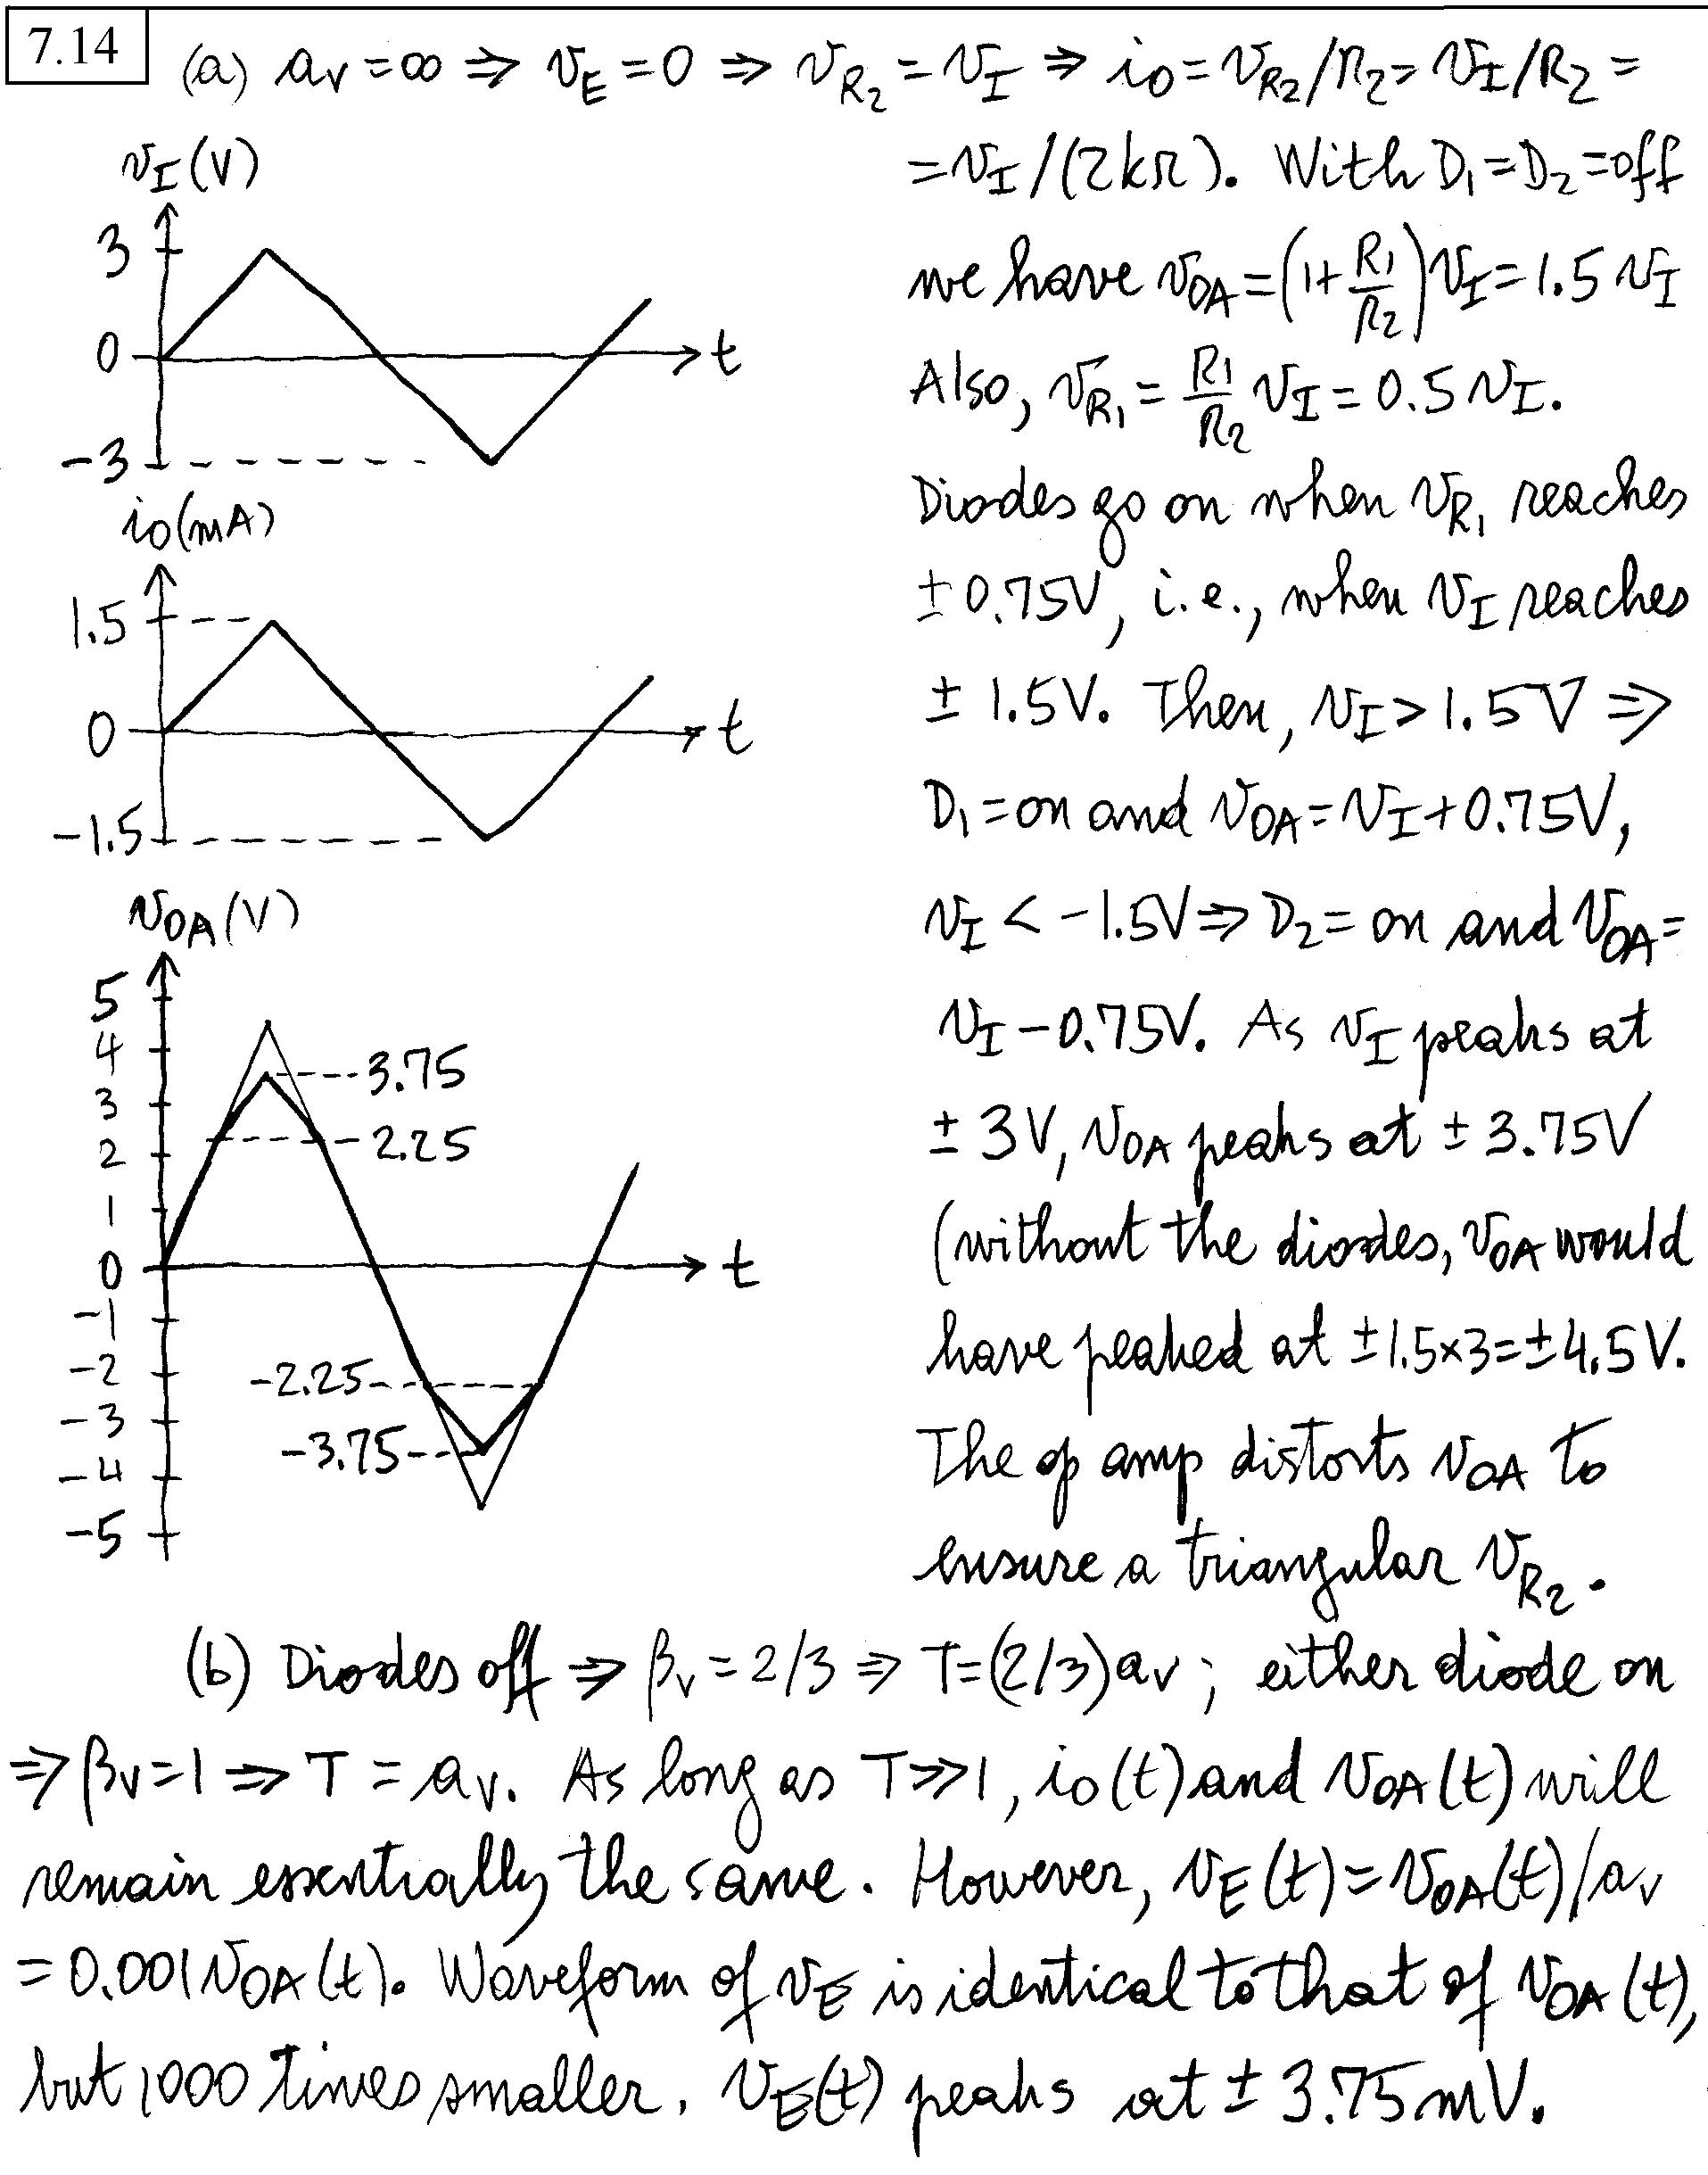 7.14
(a) a_v = ∞ ⇒ v_E = 0 ⇒ v_R2 = v_I ⇒ i_O = v_R2/R_2 = v_I/R_2 =
= v_I/(2kΩ). With D_1 = D_2 = off
we have v_OA = (1+ R_1/R_2) v_I = 1.5 v_I
Also, v_R1 = R_1/R_2 v_I = 0.5 v_I.
Diodes go on when v_R1 reaches
± 0.75V, i.e., when v_I reaches
± 1.5V. Then, v_I > 1.5V ⇒
D_1 = on and v_OA = v_I + 0.75V,
v_I < -1.5V ⇒ D_2 = on and v_OA =
v_I - 0.75V. As v_I peaks at
± 3V, v_OA peaks at ± 3.75V
(without the diodes, v_OA would
have peaked at ±1.5×3=±4.5V.
The op amp distorts v_OA to
ensure a triangular v_R2.
v_I (V)
3
0
t
-3
i_O (mA)
1.5
0
t
-1.5
v_OA (V)
5
4
3.75
3
2.25
2
1
0
t
-1
-2
-2.25
-3
-3.75
-4
-5
(b) Diodes off ⇒ β_v = 2/3 ⇒ T = (2/3)a_v; either diode on
⇒ β_v = 1 ⇒ T = a_v. As long as T >> 1, i_O(t) and v_OA(t) will
remain essentially the same. However, v_E(t) = v_OA(t)/a_v
= 0.001 v_OA(t). Waveform of v_E is identical to that of v_OA(t),
but 1000 times smaller. v_E(t) peaks at ± 3.75mV.